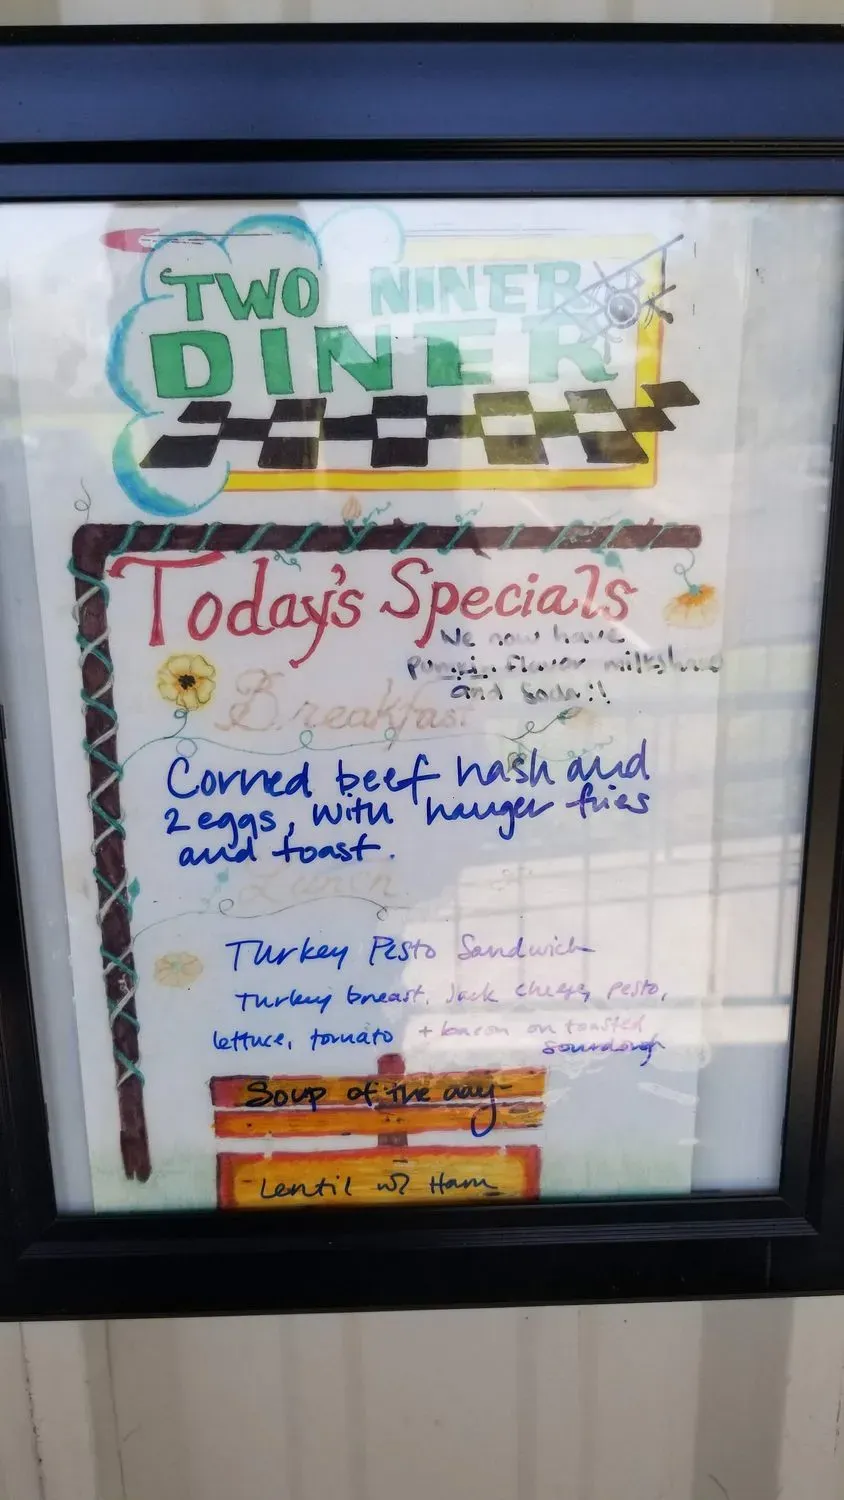 TWO NINER
DINER
Today's Specials
We now have
pumpkin flavor milkshakes
and Soda!!
Breakfast
Corned beef hash and
2 eggs, with hanger fries
and toast.
Lunch
Turkey Pesto Sandwich
Turkey breast, Jack cheese, pesto,
lettuce, tomato + bacon on toasted
sourdough
Soup of the day-
Lentil w/ Ham